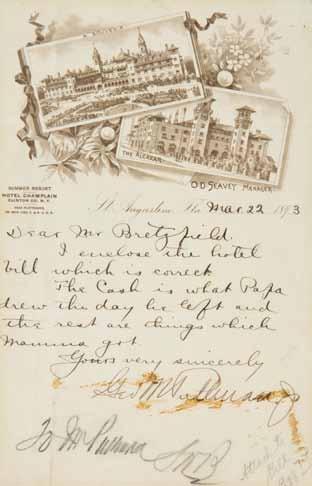 THE ALCAZAR.
O.D. SEAVEY MANAGER.
SUMMER RESORT
HOTEL CHAMPLAIN
CLINTON CO. N.Y.
St. Augustine, Fla. Mar. 22 1893
Dear Mr Bretzfield.
I enclose the hotel
bill which is correct.
The Cash is what Papa
drew the day he left and
the rest are things which
Mamma got.
Yours very sincerely
Geo M Pullman Jr
To Mr Pullman
Attach to
Bill